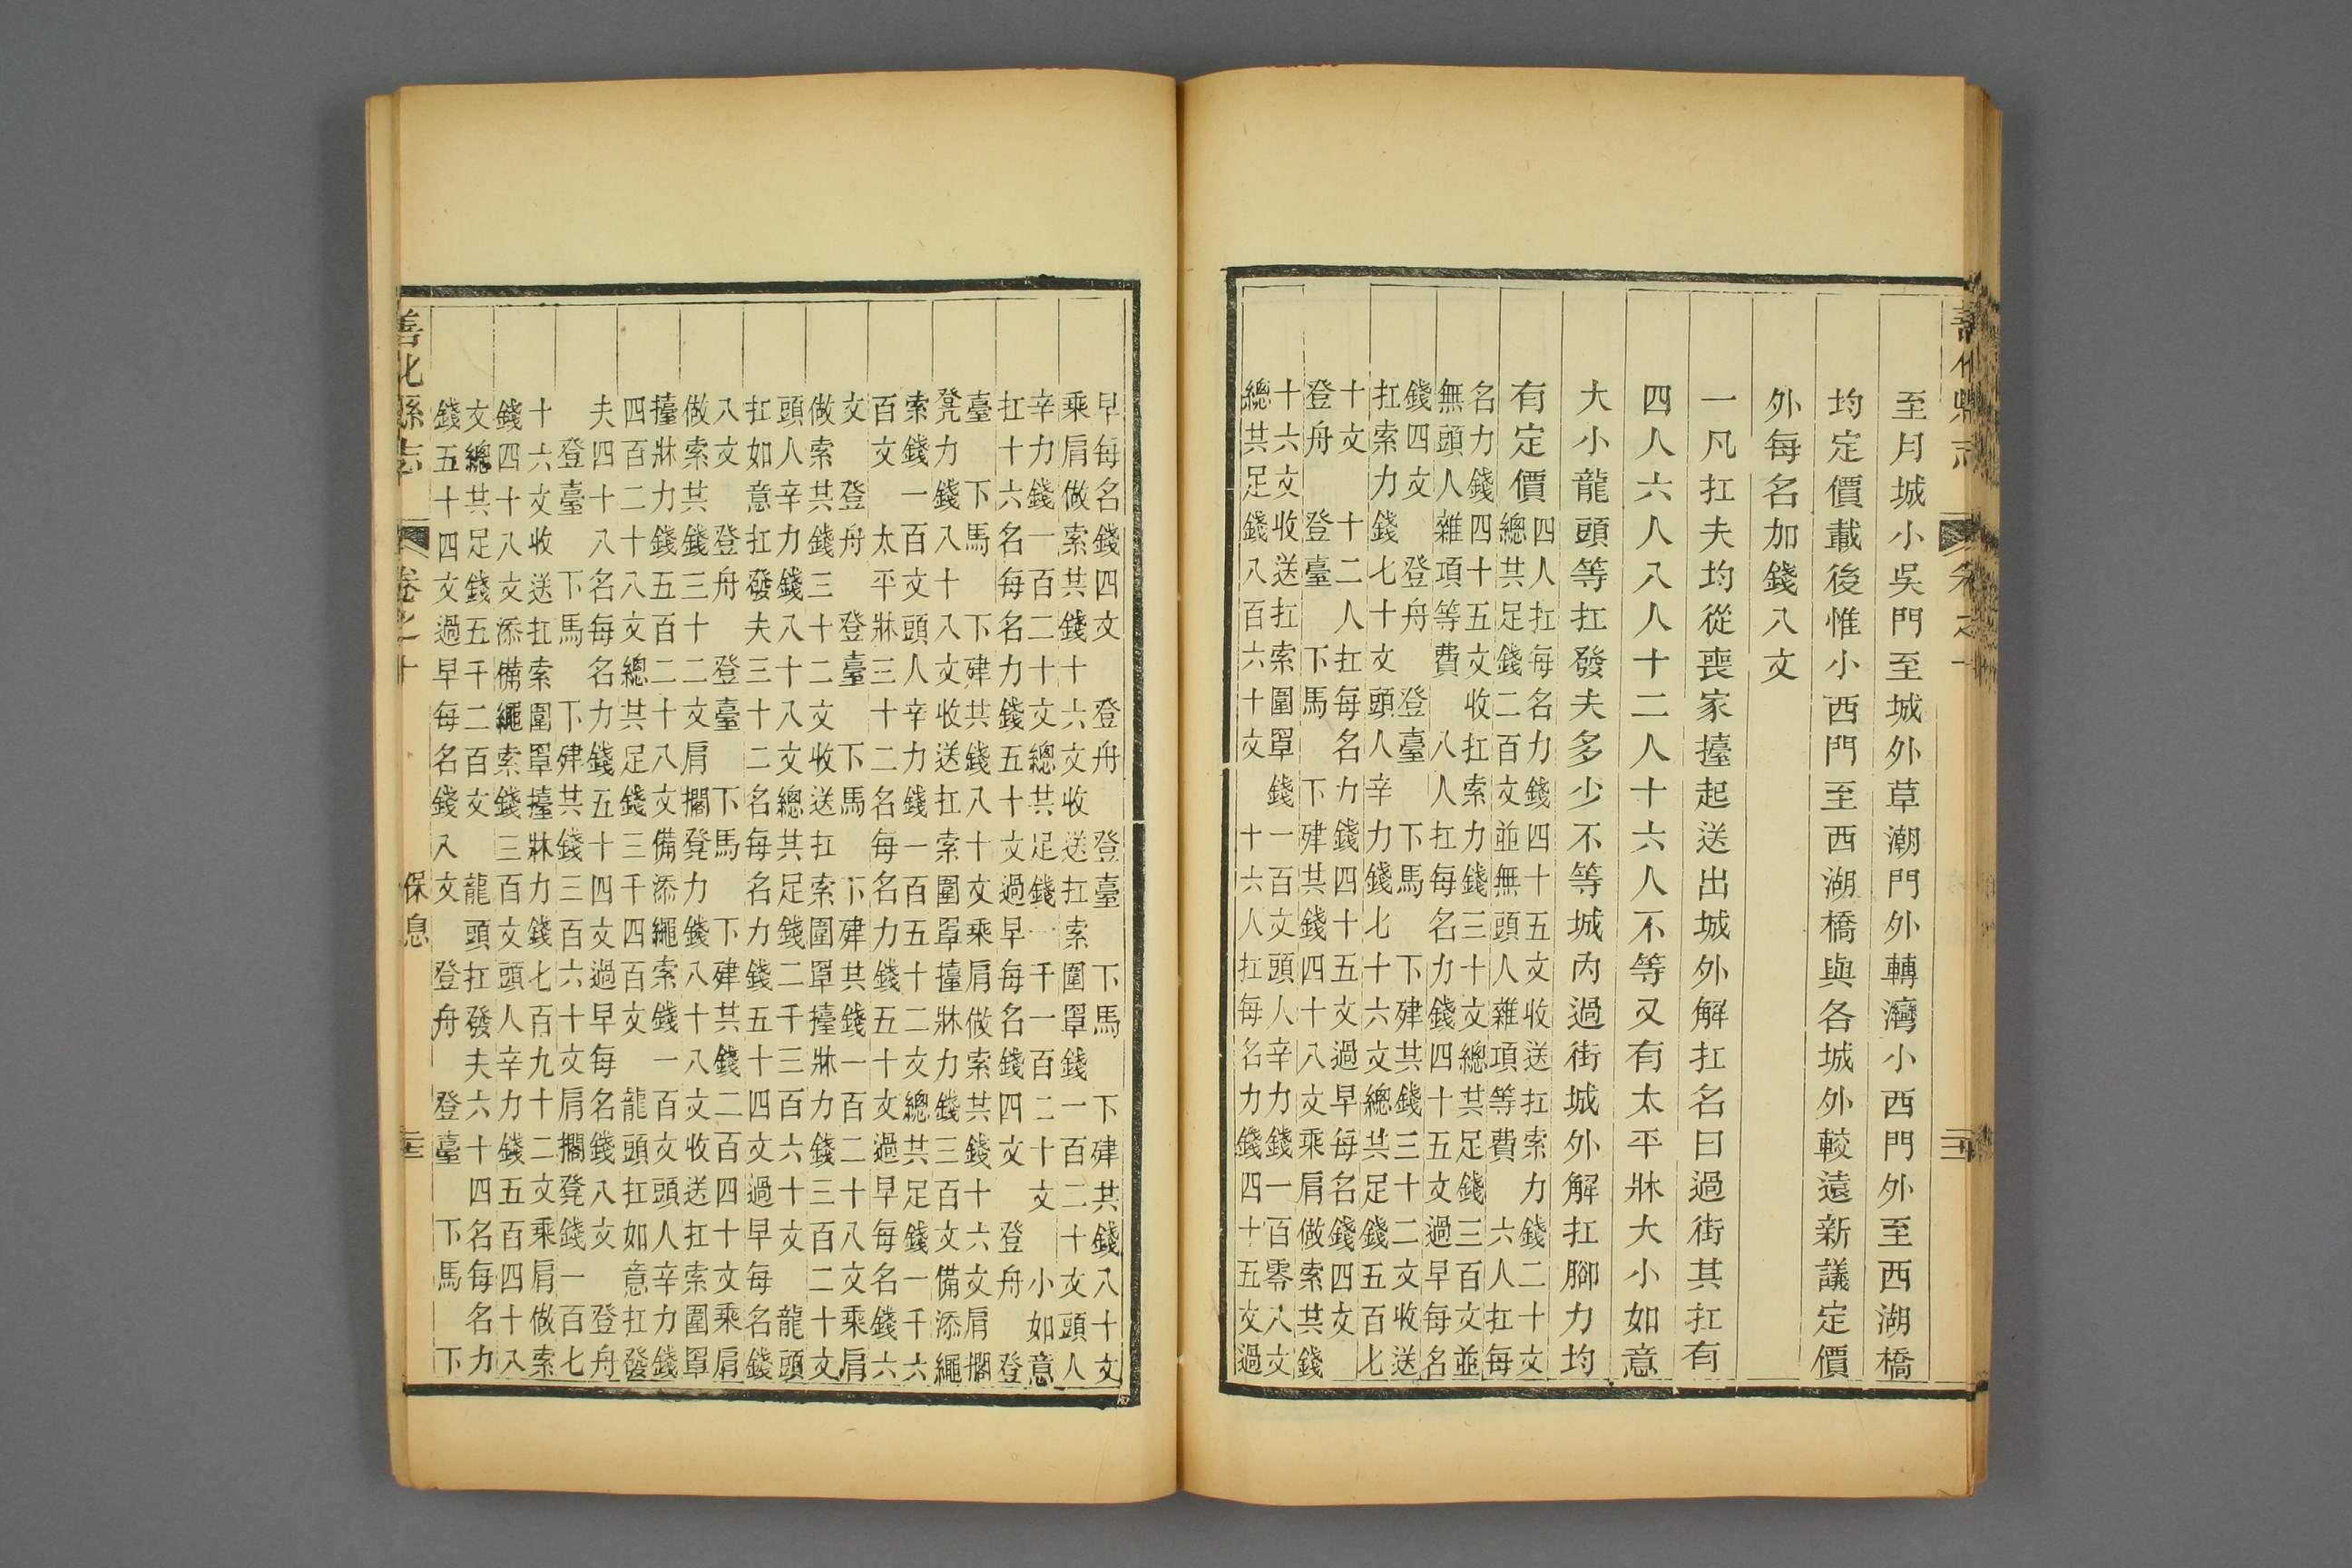 至月城小吳門至城外草潮門外轉灣小西門外至西湖橋
均定價載後惟小西門至西湖橋與各城外較遠新議定價
外每名加錢八文
一凡扛夫均從喪家擡起送出城外解扛名曰過街其扛有
四人六人八人十二人十六人不等又有太平牀大小如意
大小龍頭等扛發夫多少不等城內過街城外解扛腳力均
有定價
四人扛每名力錢四十五文收送扛索力錢二十文
總共足錢二百文並無頭人雜項等費 六人扛每
名力錢四十五文收扛索力錢三十文總共足錢三百文並
無頭人雜項等費 八人扛每名力錢四十五文過早每名
錢四文 登舟 登臺 下馬 下肂共錢三十二文收送
扛索力錢七十文頭人辛力錢七十六文總共足錢五百七
十文 十二人扛每名力錢四十五文過早每名錢四文
登舟 登臺 下馬 下肂共錢四十八文乘肩做索共錢
十六文收送扛索圍罩錢一百文頭人辛力錢一百零八文
總共足錢八百六十文 十六人扛每名力錢四十五文過
早每名錢四文 登舟 登臺 下馬 下肂共錢八十文
乘肩做索共錢十六文收送扛索圍罩錢一百二十文頭人
辛力錢一百二十文總共足錢一千一百二十文 小如意
扛十六名每名力錢五十文過早每名錢四文 登舟 登
臺 下馬 下肂共錢八十文乘肩做索共錢十六文肩擱
凳力錢八十八文收送扛索圍罩擡牀力錢三百文備添繩
索錢一百文頭人辛力錢一百五十二文總共足錢一千六
百文 太平牀三十二名每名力錢五十文過早每名錢六
文 登舟 登臺 下馬 下肂共錢一百二十八文乘肩
做索共錢三十二文收送扛索圍罩擡牀力錢三百二十文
頭人辛力錢八十八文總共足錢二千三百六十文 龍頭
扛如意扛發夫三十二名每名力錢五十四文過早每名錢
八文 登舟 登臺 下馬 下肂共錢二百四十文乘肩
做索共錢三十二文肩擱凳力錢八十八文收送扛索圍罩
擡牀力錢五百二十八文備添繩索錢一百文頭人辛力錢
四百二十八文總共足錢三千四百文 龍頭扛如意扛發
夫四十八名每名力錢五十四文過早每名錢八文 登舟
登臺 下馬 下肂共錢三百六十文肩擱凳錢一百七
十六文收送扛索圍罩擡牀力錢七百九十二文乘肩做索
錢四十八文添備繩索錢三百文頭人辛力錢五百四十八
文總共足錢五千二百文 龍頭扛發夫六十四名每名力
錢五十四文過早每名錢八文 登舟 登臺 下馬 下
善化縣志 卷之十 保息